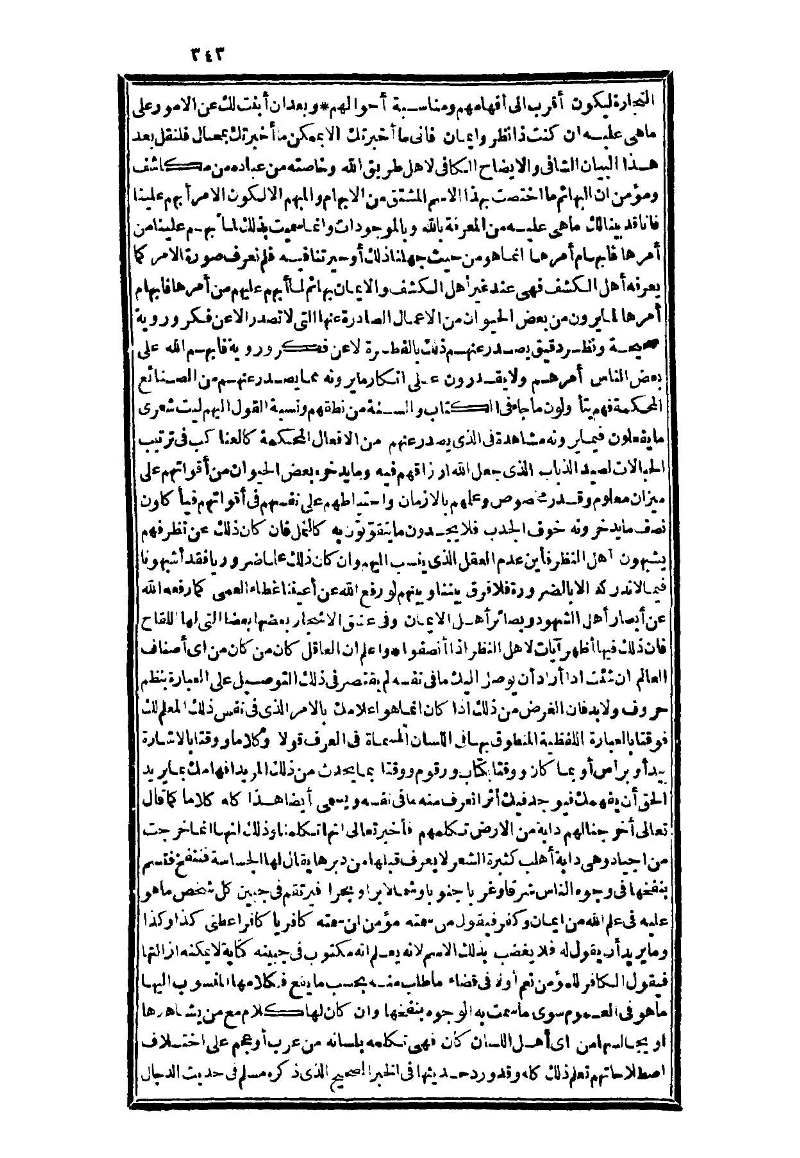 ٣٤٣
التجارة ليكون أقرب الى أفهامهم ومناسبة أحوالهم * وبعد ان أبنت لك عن الامور على
ماهى عليه ان كنت ذا نظر وايمان فانى ما أخبرتك الا بممكن ما أخبرتك بمحال فلنقل بعد
هذا البيان الشافى والايضاح الكافى لاهل طريق الله وخاصته من عباده من مكاشف
ومؤمن ان البهائم ما اختصت بهذا الاسم المشتق من الابهام والمبهم الا لكون الامر أبهم علينا
فانا قد بينا لك ماهى عليه من المعرفة بالله وبالموجودات وانما سميت بذلك لما أبهم علينا من
أمرها فابهام أمرها انما هو من حيث جهلنا ذلك أو حيرتنا فيه فلم نعرف صورة الامر كما
يعرفه أهل الكشف فهى عند غير أهل الكشف والايمان بهائم لما أبهم عليهم من أمرها فابهام
أمرها لما يرون من بعض الحيوان من الاعمال الصادرة عنها التى لا تصدر الا عن فكر وروية
صحيحة ونظر دقيق يصدر عنهم ذلك بالفطرة لا عن فكر ورويه فابهم الله على
بعض الناس أمرهم ولا يقدرون على انكار ما يرونه مما يصدر عنهم من الصنائع
المحكمة فهم يتأولون ماجاء فى الكتاب والسنة من نطقهم ونسبة القول اليهم ليت شعرى
ما يفعلون فيما يرونه مشاهدة فى الذى يصدر عنهم من الافعال المحكمة كالعناكب فى ترتيب
الحبالات لصيد الذباب الذى جعل الله ارزاقهم فيه وما يدخره بعض الحيوان من أقواتهم على
ميزان معلوم وقدر مخصوص وعلمهم بالازمان واحتياطهم على نفسهم فى أقواتهم فيأكلون
نصف ما يدخرونه خوف الجدب فلا يجدون ما يتقوتون به كالنمل فان كان ذلك عن نظر فهم
يشبهون أهل النظر فأين عدم العقل الذى ينسب اليهم وان كان ذلك علما ضروريا فقد أشبهونا
فيما لاندركه الا بالضرورة فلا فرق بيننا وبينهم لو رفع الله عن أعيننا غطاء العمى كما رفعه الله
عن أبصار أهل الشهود وبصائر أهل الايمان وفى عشق الاشجار بعضها بعضا التى لها اللقاح
فان ذلك فيها أظهر آيات لاهل النظر اذا أنصفوا * واعلم ان العاقل كان من كان من اى أصناف
العالم ان شئت اذا أراد أن يوصل اليك مافى نفسه لم يقتصر فى ذلك التوصيل على العبارة بنظم
حروف ولا بد فان الغرض من ذلك اذا كان انما هو اعلامك بالامر الذى فى نفس ذلك المعلم لك
فوقتا بالعبارة اللفظية المنطوق بها فى اللسان المسماة فى العرف قولا وكلاما ووقتا بالاشارة
بيد أو برأس أو بما كان ووقتا بكتاب ورقوم ووقتا بما يحدث من ذلك المريد افهامك بما يريد
الحق أن يفهمك فيوجد فيك أثرا تعرف منه مافى نفسه ويسمى أيضا هذا كله كلاما كما قال
تعالى أخرجنا لهم دابة من الارض تكلمهم فأخبر تعالى انها تكلمنا وذلك انها اذا خرجت
من اجياد وهى دابة أهلب كثيرة الشعر لا يعرف قبلها من دبرها يقال لها الجساسة فتنفخ فتسم
بنفخها فى وجوه الناس شرقا وغربا جنوبا وشمالا برا وبحرا فيرتقم فى جبين كل شخص ماهو
عليه فى علم الله من ايمان وكفر فيقول من سمته مؤمن ان سمته كافر يا كافر اعطنى كذا وكذا
وما يريد أن يقول له فلا يغضب بذلك الاسم لانه يعلم انه مكتوب فى جبينه كتابة لا يمكنه ازالتها
فيقول الكافر للمؤمن نعم أولا فى قضاء ما طلب منه بحسب ما يقع فكلامها المنسوب اليها
ماهو فى العموم سوى ما وسمت به الوجوه بنفخها وان كان لها كلام مع من يشاهدها
أو يجالسها من اى أهل اللسان كان فهى تكلمه بلسانه من عرب أو عجم على اختلاف
اصطلاحاتهم تعلم ذلك كله وقد ورد حديثها فى الخبر الصحيح الذى ذكره مسلم فى حديث الدجال